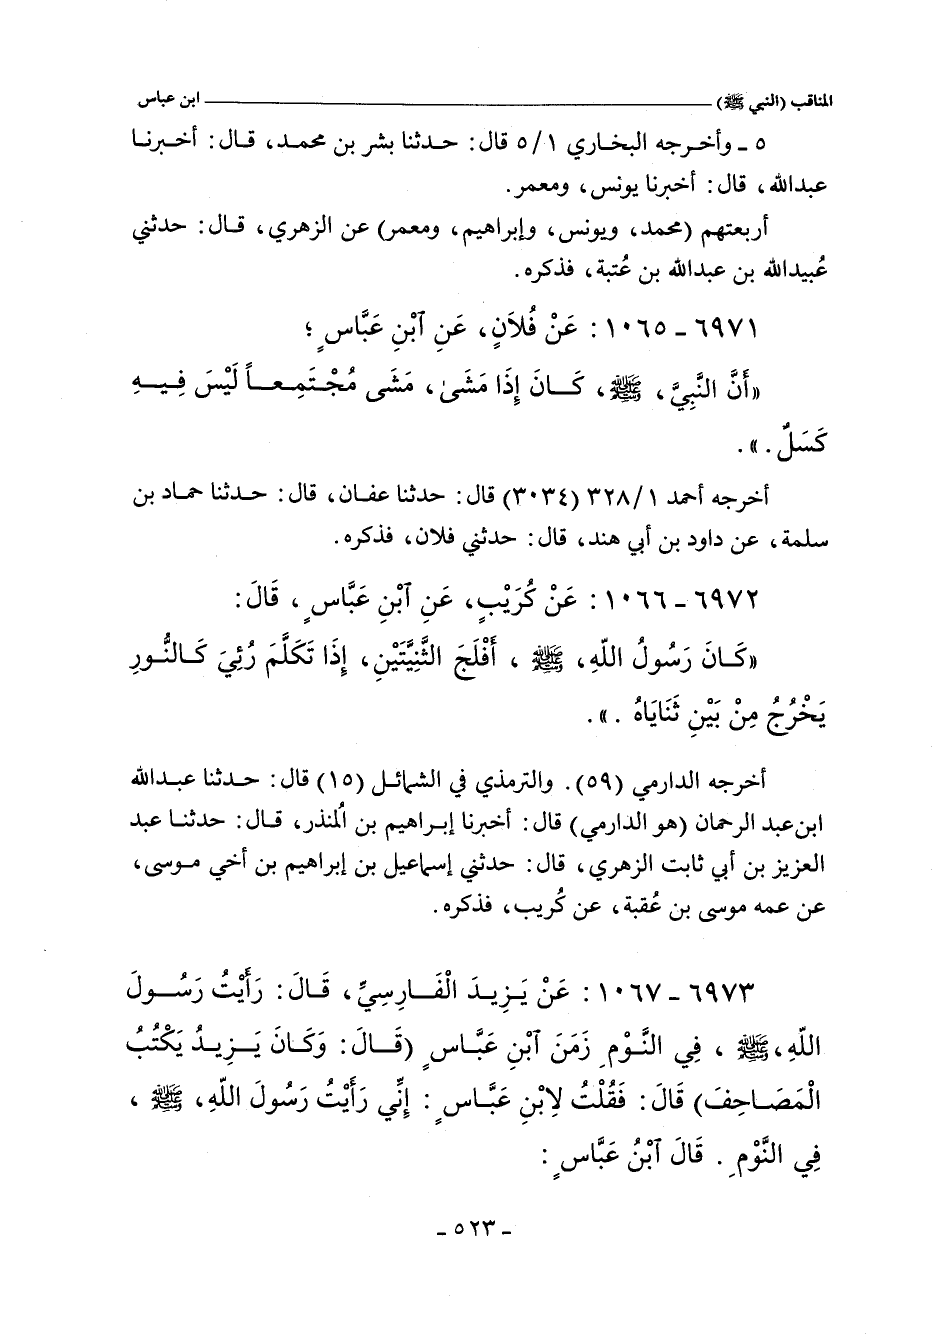 المناقب (النبي ﷺ) ــــــ ابن عباس
٥ ـ وأخرجه البخاري ٥/١ قال: حدثنا بشر بن محمد، قال: أخبرنا
عبدالله، قال: أخبرنا يونس، ومعمر.
أربعتهم (محمد، ويونس، وإبراهيم، ومعمر) عن الزهري، قال: حدثني
عُبيدالله بن عبدالله بن عُتبة، فذكره.
٦٩٧١ ـ ١٠٦٥: عَنْ فُلاَنٍ، عَنِ ٱبْنِ عَبَّاسٍ؛
«أَنَّ النَّبِيَّ، ﷺ، كَانَ إِذَا مَشَىٰ، مَشَى مُجْتَمِعاً لَيْسَ فِيهِ
كَسَلٌ.».
أخرجه أحمد ٣٢٨/١ (٣٠٣٤) قال: حدثنا عفان، قال: حدثنا حماد بن
سلمة، عن داود بن أبي هند، قال: حدثني فلان، فذكره.
٦٩٧٢ ـ ١٠٦٦: عَنْ كُرَيْبٍ، عَنِ ٱبْنِ عَبَّاسٍ، قَالَ:
«كَانَ رَسُولُ اللّهِ، ﷺ، أَفْلَجَ الثَّنِيَّتَيْنِ، إِذَا تَكَلَّمَ رُئِيَ كَالنُّورِ
يَخْرُجُ مِنْ بَيْنِ ثَنَايَاهُ.».
أخرجه الدارمي (٥٩). والترمذي في الشمائل (١٥) قال: حدثنا عبدالله
ابن عبد الرحمان (هو الدارمي) قال: أخبرنا إبراهيم بن المُنذر، قال: حدثنا عبد
العزيز بن أبي ثابت الزهري، قال: حدثني إسماعيل بن إبراهيم بن أخي موسى،
عن عمه موسى بن عُقبة، عن كُريب، فذكره.
٦٩٧٣ ـ ١٠٦٧: عَنْ يَزِيدَ الْفَارِسِيِّ، قَالَ: رَأَيْتُ رَسُولَ
اللّهِ، ﷺ، فِي النَّوْمِ زَمَنَ ٱبْنِ عَبَّاسٍ (قَالَ: وَكَانَ يَزِيدُ يَكْتُبُ
الْمَصَاحِفَ) قَالَ: فَقُلْتُ لِابْنِ عَبَّاسٍ: إِنِّي رَأَيْتُ رَسُولَ اللّهِ، ﷺ،
فِي النَّوْمِ. قَالَ ٱبْنُ عَبَّاسٍ:
ـ ٥٢٣ ـ